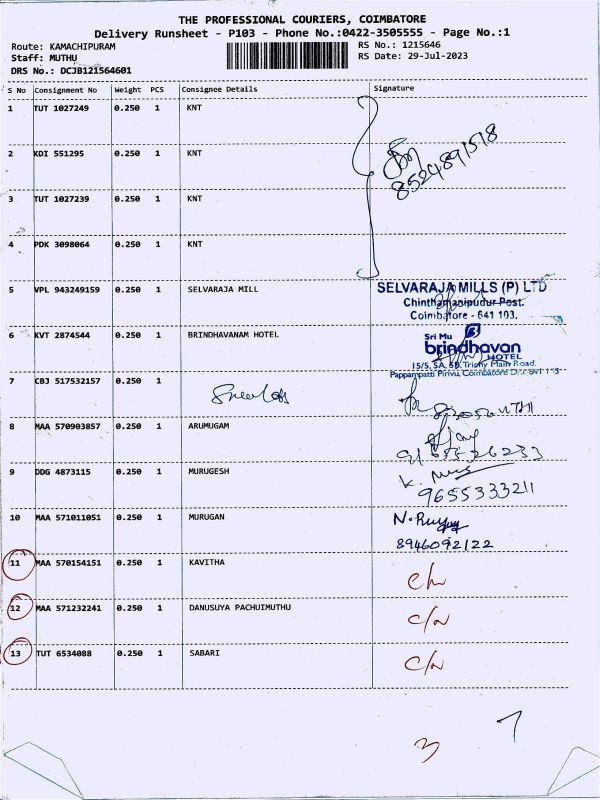 THE PROFESSIONAL COURIERS, COIMBATORE
Delivery Runsheet - P103 - Phone No.:0422-3505555 - Page No.:1
Route: KAMACHIPURAM
RS No.: 1215646
Staff: MUTHU
RS Date: 29-Jul-2023
DRS No.: DCJB121564601
S No Consignment No Weight PCS Consignee Details Signature
1 TUT 1027249 0.250 1 KNT
8524891518
2 KDI 551295 0.250 1 KNT
3 TUT 1027239 0.250 1 KNT
4 PDK 3098064 0.250 1 KNT
5 VPL 943249159 0.250 1 SELVARAJA MILL
SELVARAJA MILLS (P) LTD
Chinthamanipudur Post.
Coimbatore - 641 103.
6 KVT 2874544 0.250 1 BRINDHAVANAM HOTEL
Sri Mu
brindhavan
HOTEL
15/5, 5A, 5B, Trichy Main Road,
Pappampatti Pirivu, Coimbatore
7 CBJ 517532157 0.250 1
8 MAA 570903857 0.250 1 ARUMUGAM
9 DDG 4873115 0.250 1 MURUGESH
K.
9655333211
10 MAA 571011051 0.250 1 MURUGAN
8946092122
11 MAA 570154151 0.250 1 KAVITHA
12 MAA 571232241 0.250 1 DANUSUYA PACHUIMUTHU
13 TUT 6534088 0.250 1 SABARI
7
3